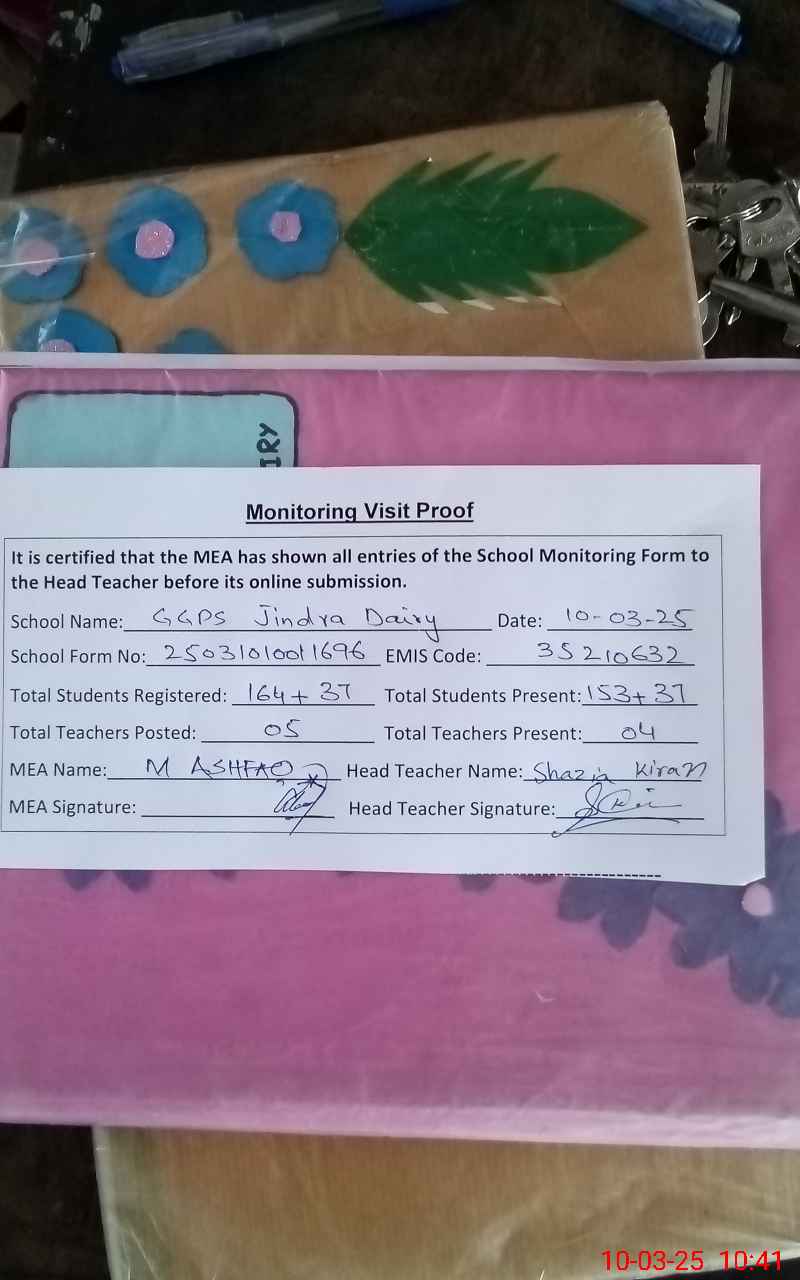 IRY
Monitoring Visit Proof
It is certified that the MEA has shown all entries of the School Monitoring Form to
the Head Teacher before its online submission.
School Name: GGPS Jindra Dairy Date: 10-03-25
School Form No: 25031010011696 EMIS Code: 35210632
Total Students Registered: 164+37 Total Students Present: 153+37
Total Teachers Posted: 05 Total Teachers Present: 04
MEA Name: M ASHFAQ Head Teacher Name: Shazia Kiran
MEA Signature: Head Teacher Signature:
10-03-25 10:41